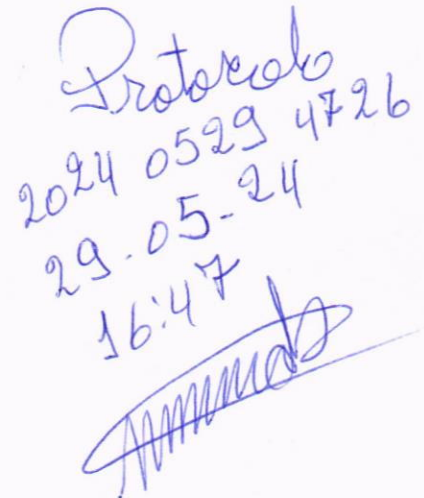 Protocolo
2024 0529 4726
29.05-24
16:47